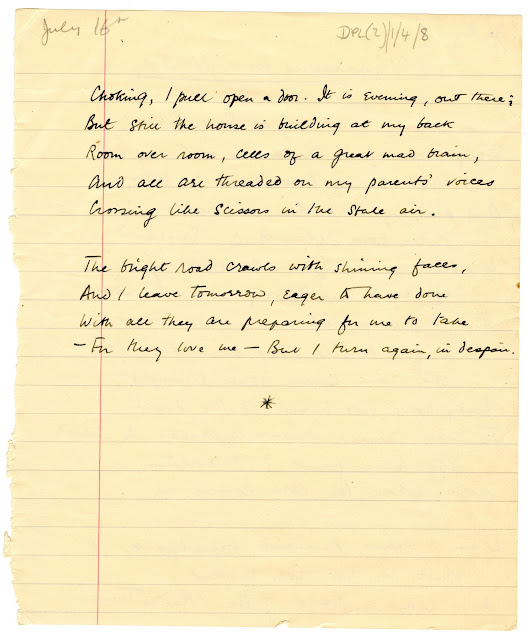 July 16th
DPL(2)/1/4/8
Choking, I pull open a door. It is evening, out there;
But still the house is building at my back
Room over room, cells of a great mad brain,
And all are threaded on my parents' voices
Crossing like scissors in the stale air.
The bright road crawls with shining faces,
And I leave tomorrow, eager to have done
With all they are preparing for me to take
– For they love me – But I turn again, in despair.
*